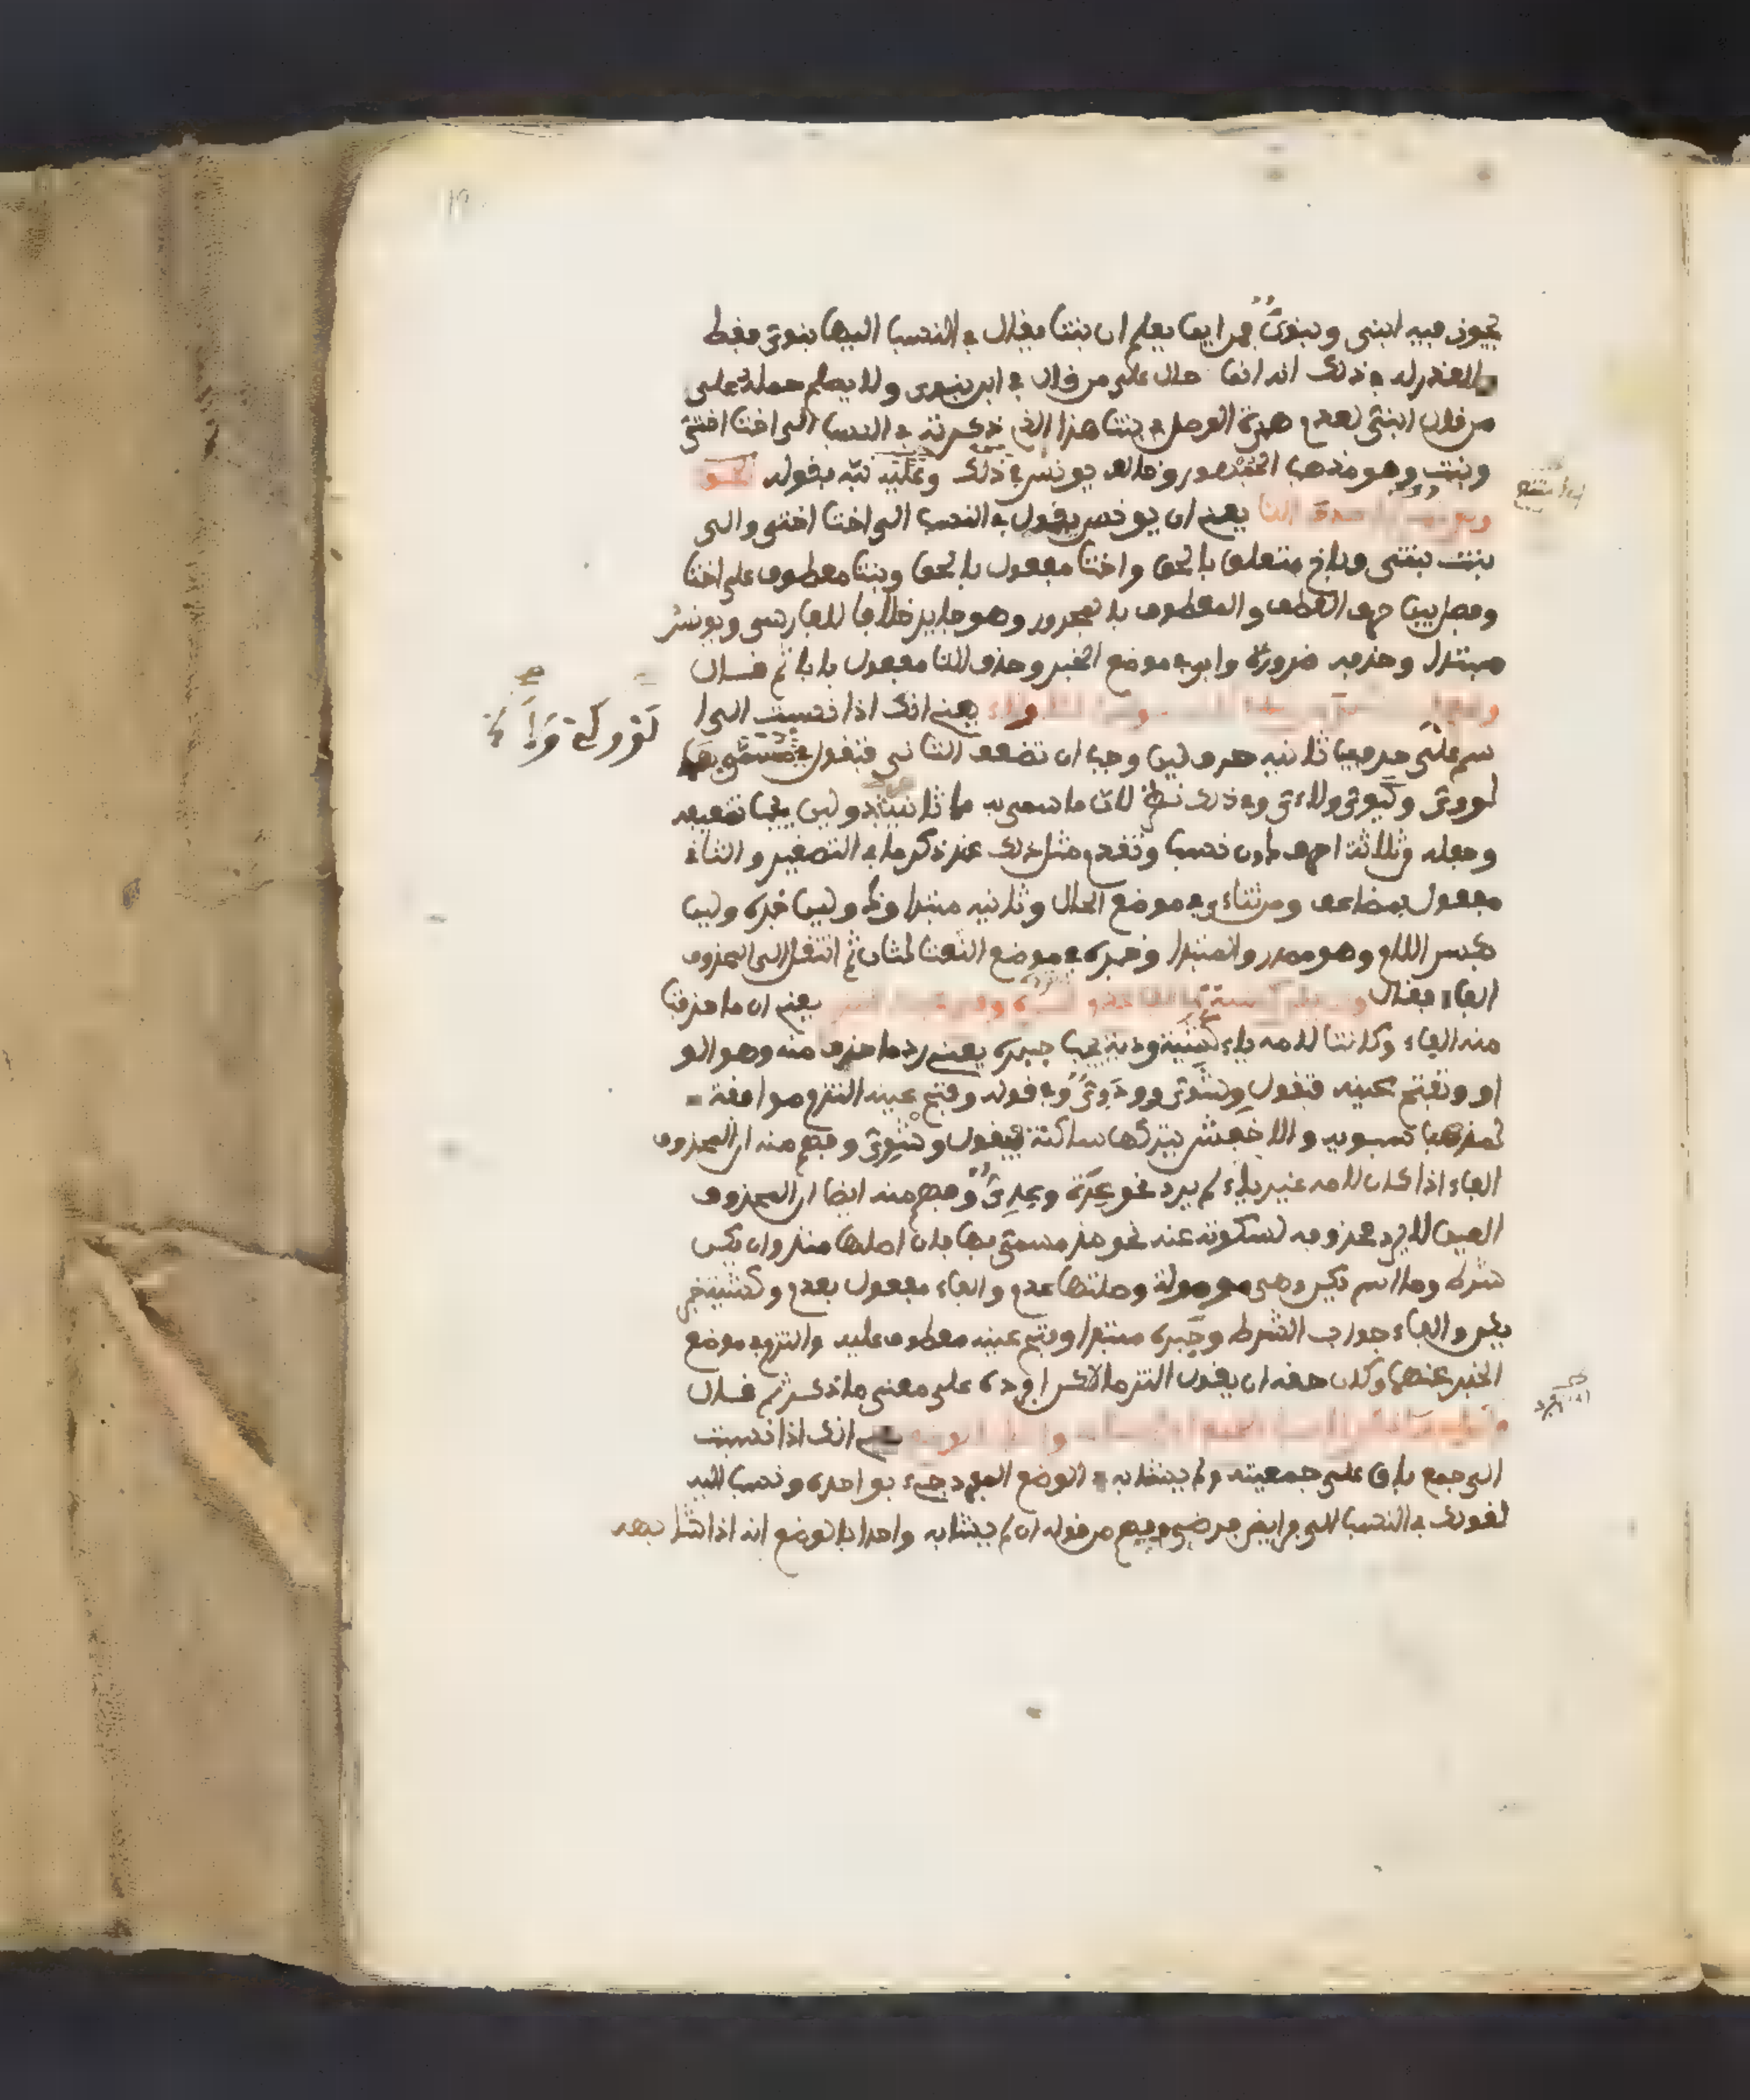 يجوز فيه ابنى وبنوى فمن اين يعلم ان بنتا يقال في النسب اليها بنوى فقط
فالعذر له في ذلك انه انما حال على من قال في ابن بنوى ولا يصلح حمله على
من قال ابنى لعدم همزة الوصل في بنت هذا الذي ذكرته في النسب الى اخت اختى
وبنت وهو مذهب الجمهور وخالف يونس في ذلك وعليه نبه بقوله
يعنى ان يونس يقول في النسب الى اخت اختى والى
بنت بنتى وباخ متعلق بالحق واختا مفعول بالحق وبنتا معطوف على اختا
وفصل بين حرف العطف والمعطوف بالمجرور وهو جايز خلافا للفارسي ويونس
مبتدا وحذفه ضرورة وابى في موضع الخبر وحذف التا مفعول بابى ثم قال
يعنى انك اذا نسبت الى ا
سم على حرفين ثانيه حرف لين وجب ان تضعف الثانى فتقول في مسمى بها
لووى وكيوى ولاءى وفي ذلك نظر لان ما سمى به مما ثانيه ذو لين يجب تضعيفه
وجعله ثلاثة احرف دون نسب وتقدم مثل ذلك عند ذكر ما في التصغير والثان
مفعول بضاعف ومن ثناءى في موضع الحال وثانيه مبتدا وذو لين خبره ولين
بكسر اللام وهو مصدر والمبتدا وخبره في موضع النعت لثان ثم انتقل الى المحذوف
الفاء فقال يعنى ان ما حذفت
منه الفاء وكانت لامه ياء كشية ودية يجب جبره يعنى رد ما حذف منه وهو الو
او وتفتح عينه فتقول وشوى وودوى وفي قوله وفتح عينه التزم موافقة
لمذهب سيبويه والاخفش يتركها ساكنة فيقول وشيى وفهم منه ان المحذوف
الفاء اذا كان لامه غير ياء لم يرد نحو عدة وعدى وفهم منه ايضا ان المحذوف
العين لا يرد محذوفه لسكوته عنه نحو مذ مسمى بها فان اصلها منذ وان يكن
شرط وما اسم يكن وهى موصولة وصلتها عدم والفاء مفعول بعدم وكشية خبر
يكن والفاء جواب الشرط وجبره مبتدا وفتح عينه معطوف عليه والتزم في موضع
الخبر عنهما وكان حقه ان يقول التزما لاكن افرده على معنى ما ذكر ثم قال
انك اذا نسبت
الى جمع باق على جمعيته ولم يشابه في الوضع المفرد جىء بواحده ونسب اليه
كقولك في النسب الى فرايض فرضى وفهم من قوله ان لم يشابه واحدا بالوضع انه اذا شابهه